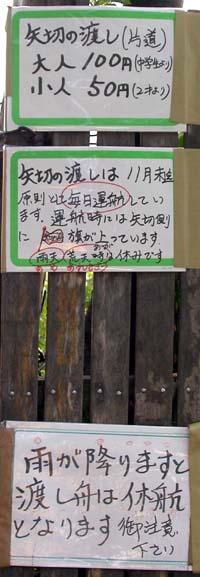 矢切の渡し(片道)
大人 100円(中学生より)
小人 50円(2才より)
矢切の渡しは 11月末迄
原則として毎日運航してい
ます。運航時には矢切側
に 旗が上っています。
雨天 荒天時は休みです
雨が降りますと
渡し舟は休航
となります 御注意
下さい